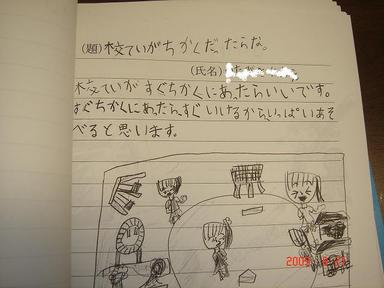 (題) 校ていがちかくだったらな。
(氏名)
校ていがすぐちかくにあったらいいです。
すぐちかくにあったらすぐいけるからいっぱいあそ
べると思います。